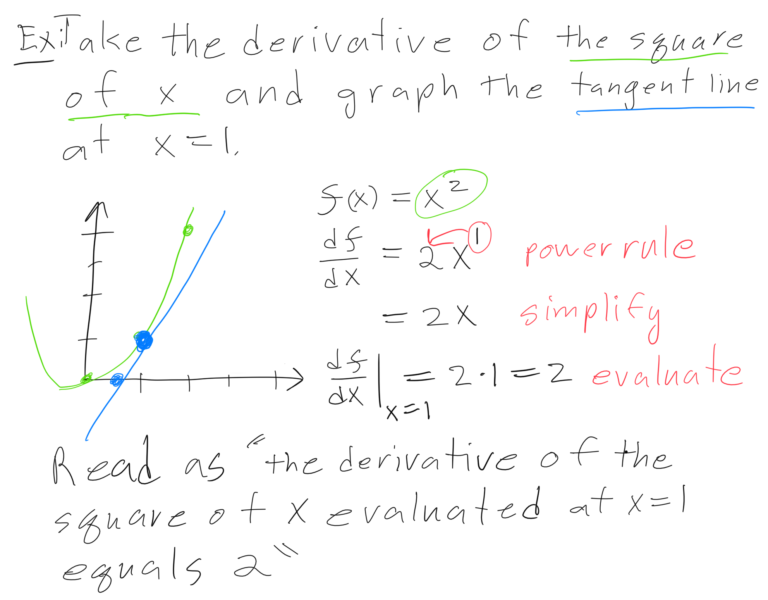 Ex: Take the derivative of the square
of x and graph the tangent line
at x=1.
f(x) = x²
df/dx = 2x¹ power rule
= 2x simplify
df/dx|x=1 = 2·1=2 evaluate
Read as "the derivative of the
square of x evaluated at x=1
equals 2"